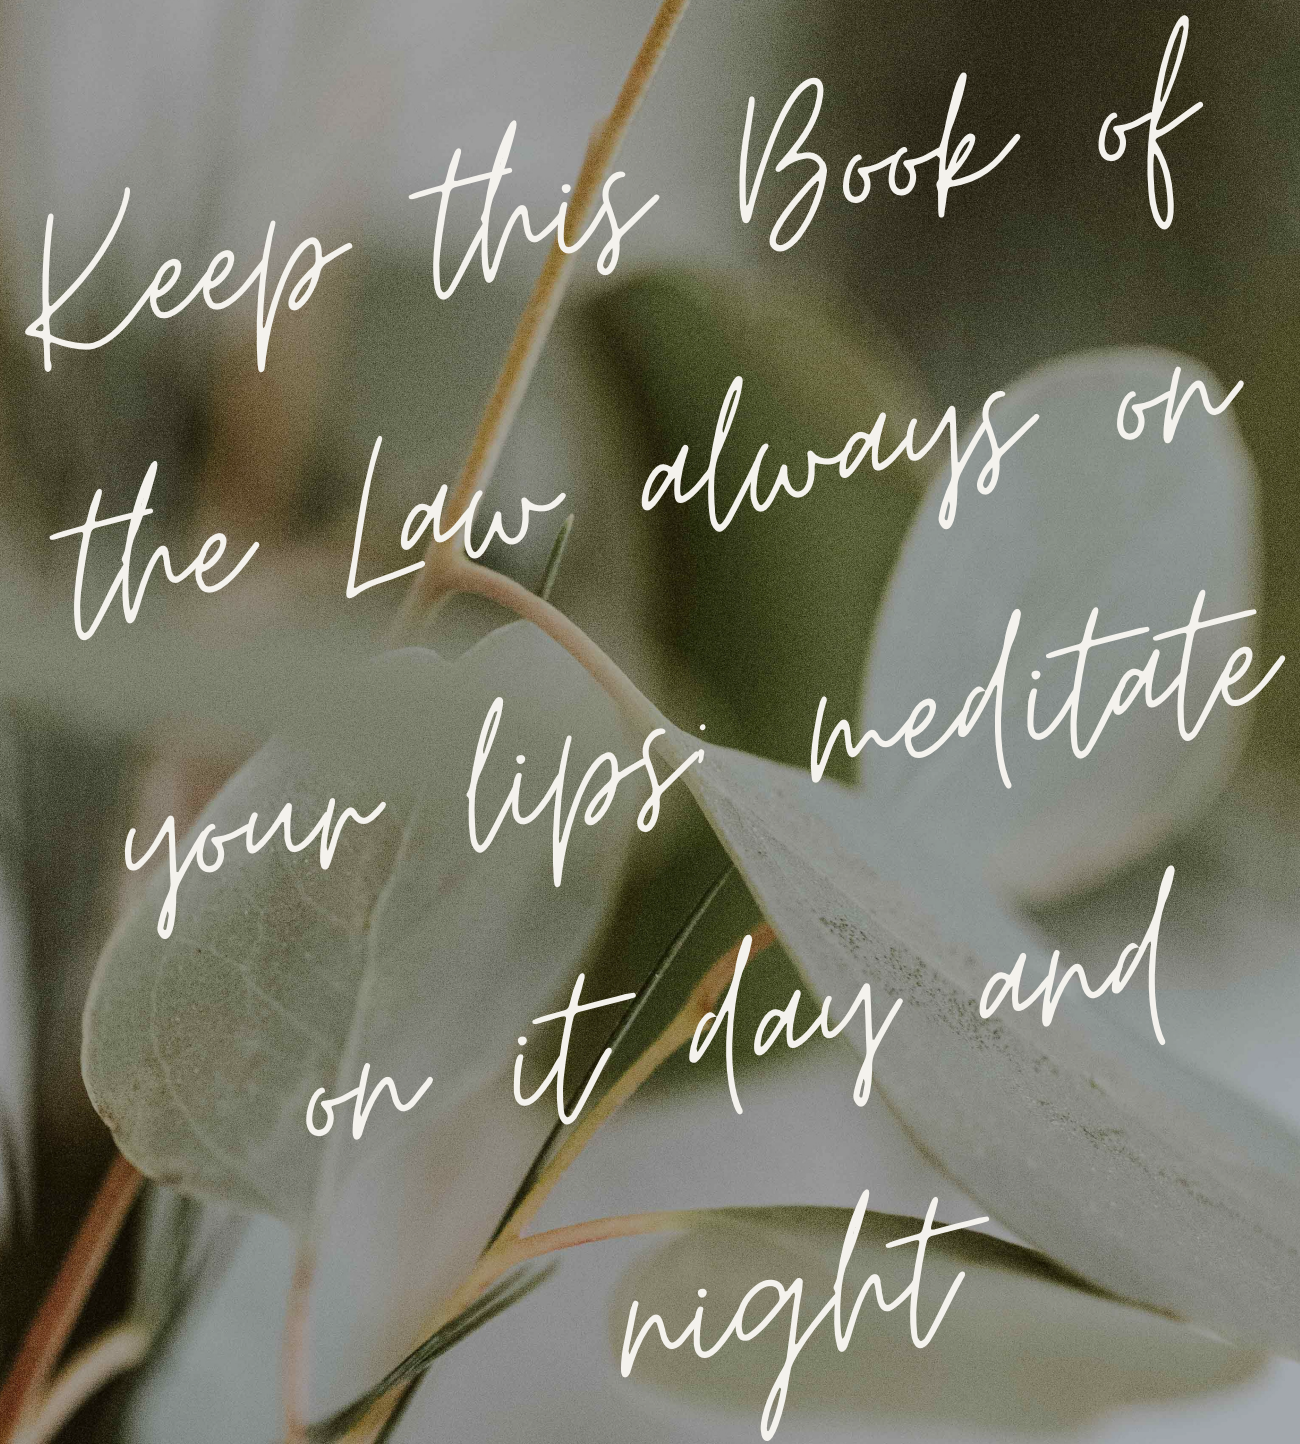 Keep this Book of
the Law always on
your lips; meditate
on it day and
night